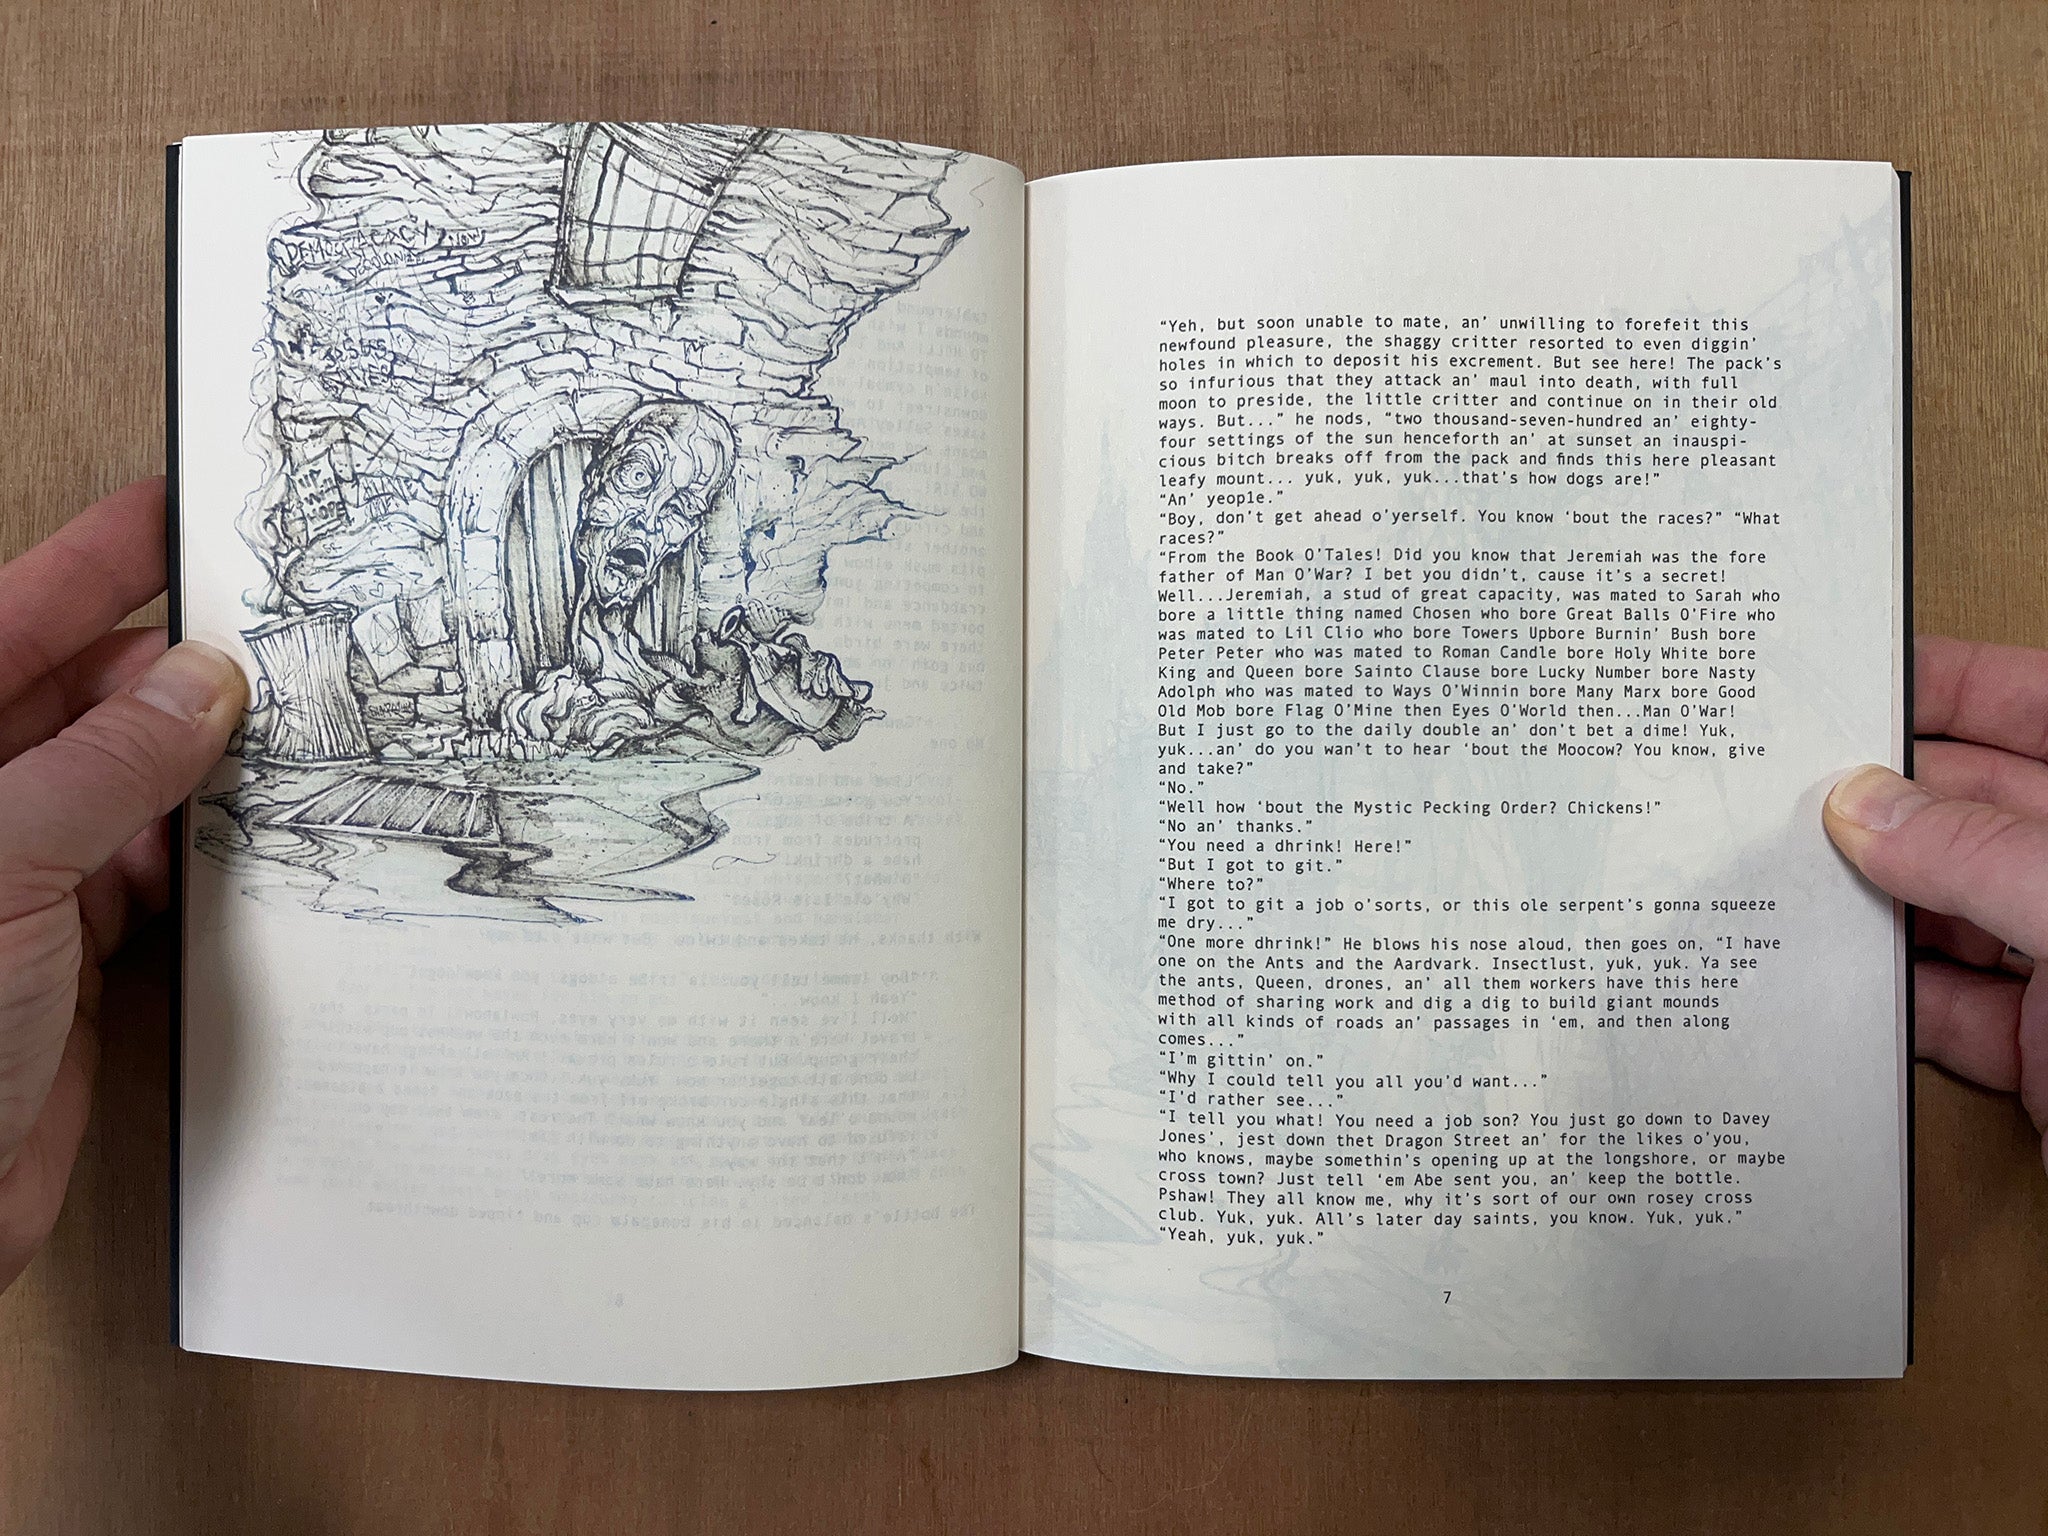 DEMOCRACACY NOW
DECOLONIZE
“Yeh, but soon unable to mate, an’ unwilling to forefeit this
newfound pleasure, the shaggy critter resorted to even diggin’
holes in which to deposit his excrement. But see here! The pack’s
so infurious that they attack an’ maul into death, with full
moon to preside, the little critter and continue on in their old
ways. But...” he nods, “two thousand-seven-hundred an’ eighty-
four settings of the sun henceforth an’ at sunset an inauspi-
cious bitch breaks off from the pack and finds this here pleasant
leafy mount... yuk, yuk, yuk...that’s how dogs are!”
“An’ yeople.”
“Boy, don’t get ahead o’yerself. You know ‘bout the races?” “What
races?”
“From the Book O’Tales! Did you know that Jeremiah was the fore
father of Man O’War? I bet you didn’t, cause it’s a secret!
Well...Jeremiah, a stud of great capacity, was mated to Sarah who
bore a little thing named Chosen who bore Great Balls O’Fire who
was mated to Lil Clio who bore Towers Upbore Burnin’ Bush bore
Peter Peter who was mated to Roman Candle bore Holy White bore
King and Queen bore Sainto Clause bore Lucky Number bore Nasty
Adolph who was mated to Ways O’Winnin bore Many Marx bore Good
Old Mob bore Flag O’Mine then Eyes O’World then...Man O’War!
But I just go to the daily double an’ don’t bet a dime! Yuk,
yuk...an’ do you wan’t to hear ‘bout the Moocow? You know, give
and take?”
“No.”
“Well how ‘bout the Mystic Pecking Order? Chickens!”
“No an’ thanks.”
“You need a dhrink! Here!”
“But I got to git.”
“Where to?”
“I got to git a job o’sorts, or this ole serpent’s gonna squeeze
me dry...”
“One more dhrink!” He blows his nose aloud, then goes on, “I have
one on the Ants and the Aardvark. Insectlust, yuk, yuk. Ya see
the ants, Queen, drones, an’ all them workers have this here
method of sharing work and dig a dig to build giant mounds
with all kinds of roads an’ passages in ‘em, and then along
comes...”
“I’m gittin’ on.”
“Why I could tell you all you’d want...”
“I’d rather see...”
“I tell you what! You need a job son? You just go down to Davey
Jones’, jest down thet Dragon Street an’ for the likes o’you,
who knows, maybe somethin’s opening up at the longshore, or maybe
cross town? Just tell ‘em Abe sent you, an’ keep the bottle.
Pshaw! They all know me, why it’s sort of our own rosey cross
club. Yuk, yuk. All’s later day saints, you know. Yuk, yuk.”
“Yeah, yuk, yuk.”
7